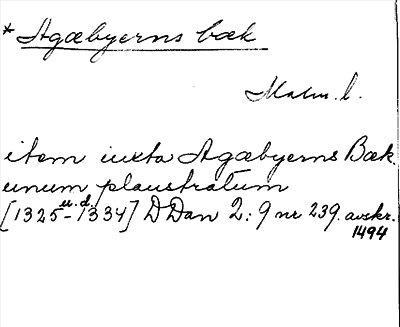 *Agæbyerns bæk
Malm. l.
item iuxta Agæbyerns Bæk.
unum plaustratum
[1325 u.d. - 1334] DDan 2: 9 nr 239. avskr.
1494